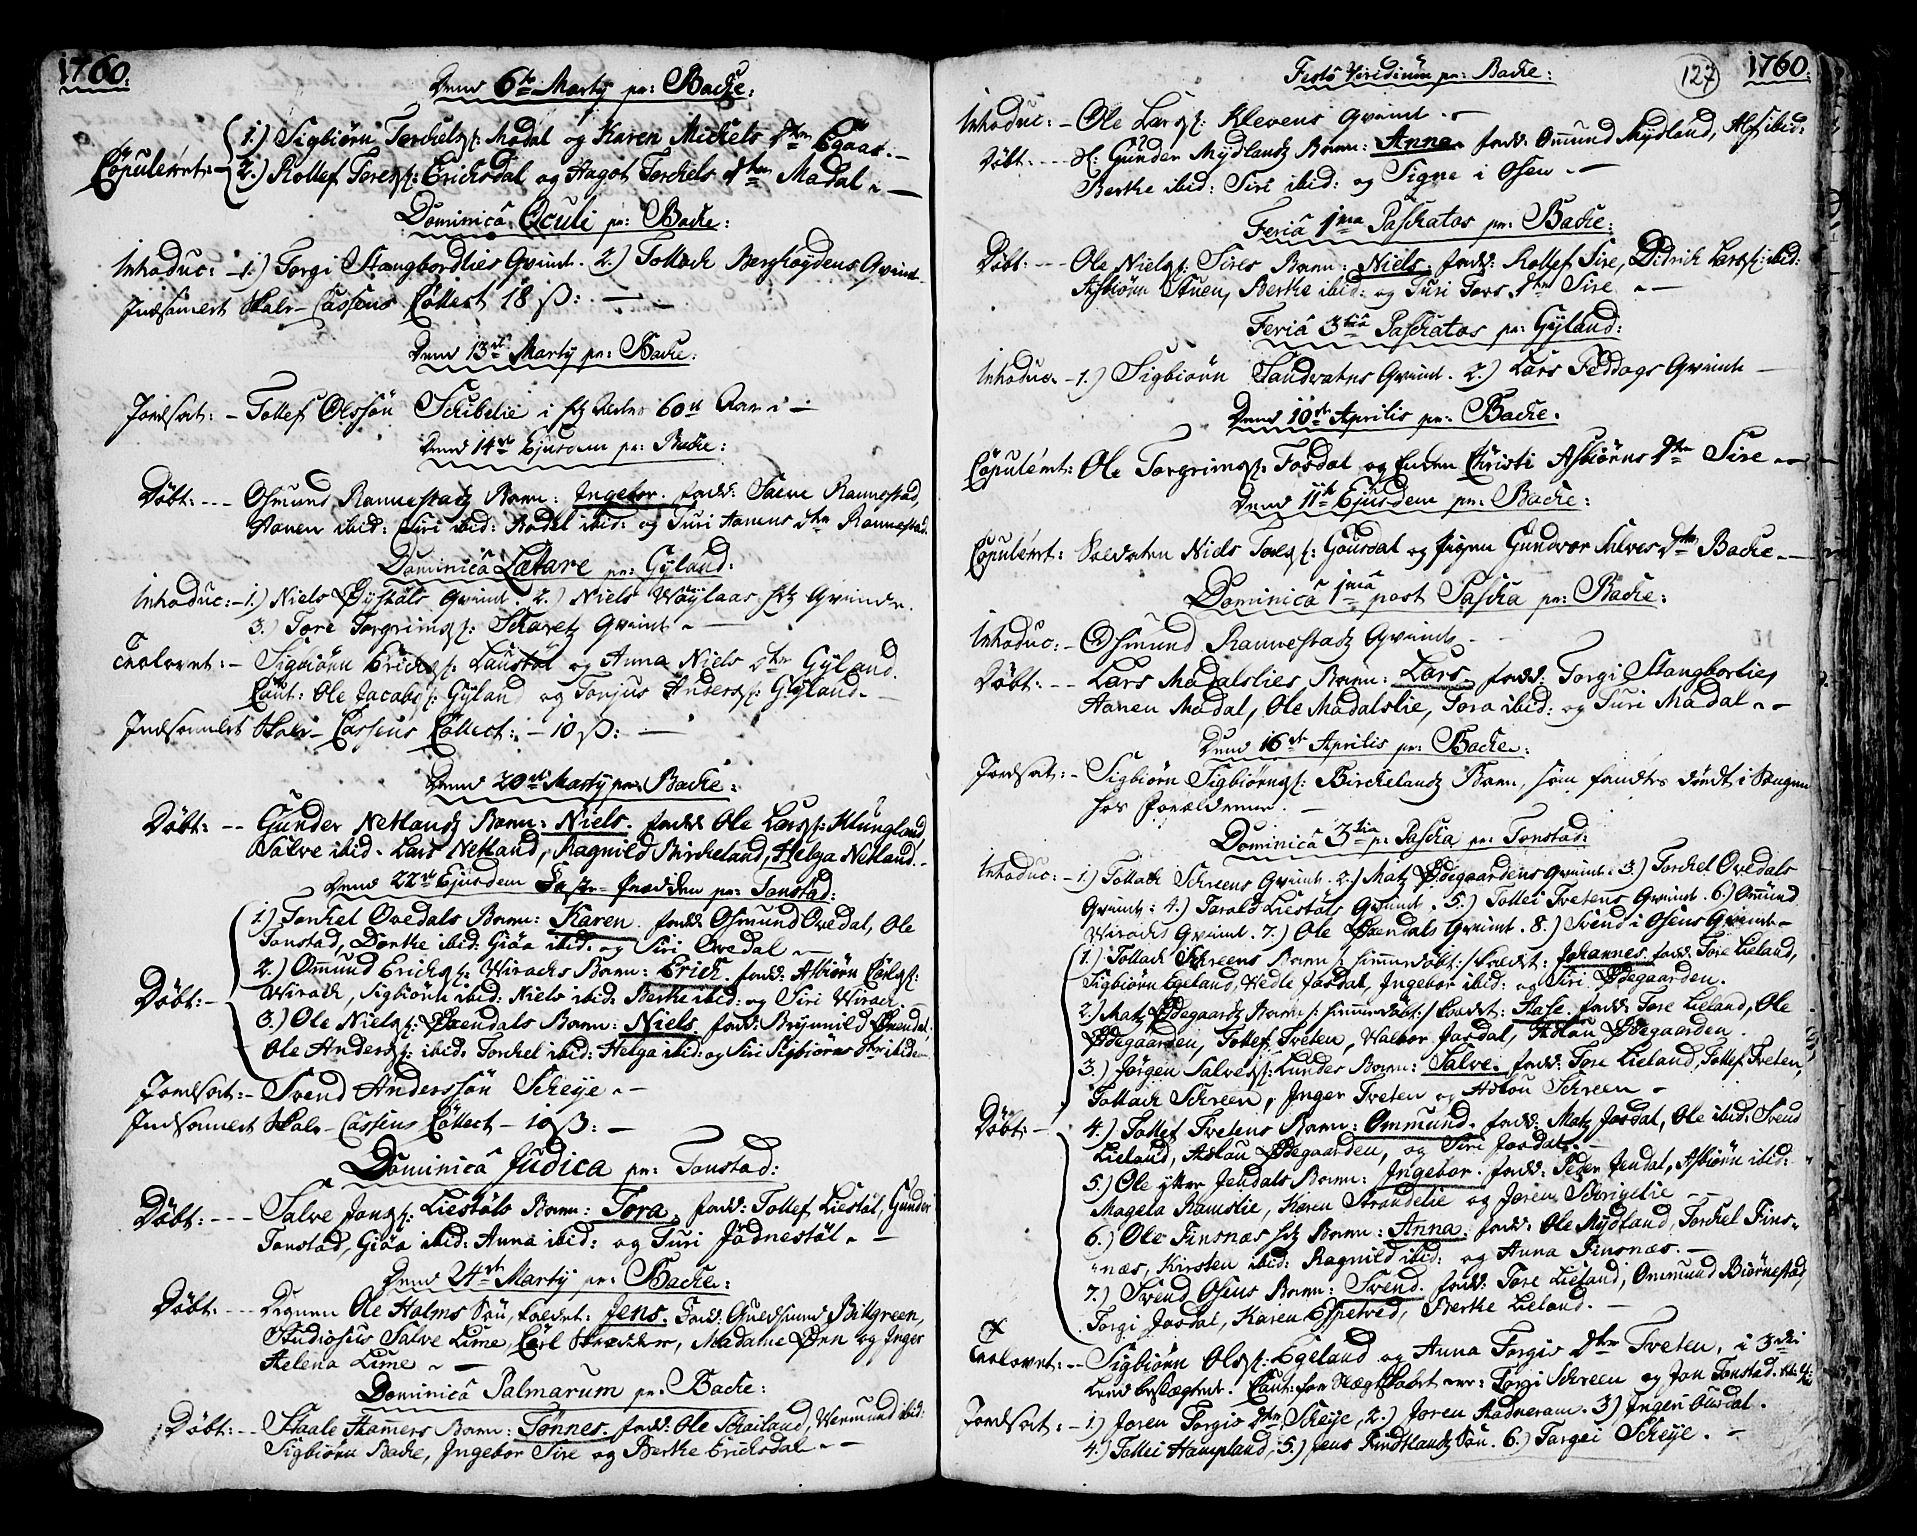 1760.
Dend 6te Marty pr: Backe:
1.) Sigbiörn Torkels: Madal og Karen Michels Dtr Egaas.
Copuleret: 2.) Rollef Tores: Ericksdal og Aagot Torckels Dtr Madal
Dominica Oculi pr: Backe:
Introduc: 1.) Torgi Stangbordlies Qvinde. 2.) Tollack Berghöydens Qvinde
Indsamlet Skole-Cassens Collect 18 ß:
Dend 13de Marty pr: Backe:
Jordsat: Tollef Olssön Skibelie i sit Alders 60de Aar
Dend 14de Ejusdem pr: Backe:
Döbt: Osmund Rannestads Barn: Ingebor. fadd: Salve Rannestad,
Aanen ibid: Siri ibid: Aadel ibid: og Turi Aanens dtr Rannestad.
Dominica Lætare pr: Gyland:
Introduc: 1.) Niels Øystöls Qvinde. 2.) Niels Wöylaas hts Qvinde.
3.) Tore Torgrims: Skarets Qvinde
Trolovet: Sigbiörn Ericks: Laustöl og Anna Niels dtr Gyland.
Caut: Ole Jacobs: Gyland og Tonjus Anders: Gyland.
Indsamlet Skole-Cassens Collect: 10 ß:
Dend 20de Marty pr: Backe:
Döbt: Gunder Netlands Barn: Niels. fadd: Ole Lars: Klungland,
Salve ibid. Lars Netland, Ragnild Birckeland, Helga Netland.
Dend 22de Ejusdem Faste-Prædiken pr: Tonstad:
1.) Torckel Ovedals Barn: Karen. fadd: Osmund Ovedal, Ole
Tonstad, Dorthe ibid: Giöa ibid: og Siri Ovedal
2.) Ommund Ericks: Wiracks Barn: Erick. fadd: Asbiörn Carls:
Döbt: Wirack, Sigbiörn ibid: Niels ibid: Berthe ibid: og Siri Wirack.
3.) Ole Niels: Øxendals Barn: Niels. fadd: Brynnild Øxendal,
Ole Anders: ibid: Torckel ibid: Helga ibid: og Siri Sigbiörns Dtr ibid:
Jordsat: Svend Anderssön Skeye
Indsamlet Skole-Cassens Collect 10 ß:
Dominica Judica pr: Tonstad:
Döbt: Salve Jons: Liestöls Barn: Tora. fadd: Tollef Liestöl, Gunder
Tonstad, Giöa ibid: Anna ibid: og Turi Jödnestöl
Dend 24de Marty pr: Backe:
Döbt: Degnen Ole Holms Sön, kaldet: Jens. Fadd: Guldsmed Billgreen,
Studiosus Salve Lime, Carl Skrædder, Madame Ørn og Inger
Helena Lime
Dominica Palmarum pr: Backe:
Döbt: Staale Hammers Barn: Tönnes. fadd: Ole Skailand, Wermund ibid:
Sigbiörn Backe, Ingebor Sire og Berthe Ericksdal
127
1760.
Festo Viridium pr: Backe:
Introduc: Ole Lars: Klevens Qvinde
Döbt: Sl: Gunder Mydlands Barn: Anna. fadd: Ommund Mydland, Alf ibid:
Berthe ibid: Siri ibid: og Signe i Osen
Feria 1ma Paschatos pr: Backe:
Döbt: Ole Niels: Sires Barn: Niels. fadd: Rollef Sire, Didrich Lars: ibid:
Asbiörn Stuen, Berthe ibid: og Turi Tores dtr Sire
Feria 3tia Paschatos pr: Gyland:
Introduc. 1.) Sigbiörn Sandvatns Qvinde. 2.) Lars Feddags Qvinde
Dend 10de Aprilis pr: Backe.
Copuleret: Ole Torgrims: Fosdal og Enken Christi Asbiörns Dtr Sire
Dend 11te Ejusdem pr: Backe:
Copuleret: Soldaten Niels Tores: Gousdal og Pigen Gundvor Salves Dtr Backe
Dominica 1ma post Pascha pr: Backe:
Introduc: Osmund Rannestads Qvinde
Döbt: Lars Madalslies Barn: Lars. fadd: Torgi Stangborlie,
Aanen Madal, Ole Madalslie, Tora ibid: og Turi Madal
Dend 16de Aprilis pr: Backe:
Jordsat: Sigbiörn Sigbiörns: Birckelands Barn, som fandtes dödt i Sengen
hos Forældrene.
Dominica 3tia p: Pascha pr: Tonstad:
Introduc: 1.) Tollack Skreens Qvinde. 2.) Matz Ødegaardens Qvinde: 3.) Torckel Ovedals
Qvinde: 4.) Tarald Liestöls Qvinde. 5.) Tollei Tvetens Qvinde. 6.) Ommund
Wiracks Qvinde. 7.) Ole Øxendals Qvinde. 8.) Svend i Osens Qvinde
1.) Tollack Skreens Barn /: hiemmedöbt :/ kaldet: Johannes. fadd: Tore Lieland,
Sigbiörn Egeland, Vedle Josdal, Ingebor ibid: og Siri Ødegaarden.
2.) Matz Ødegaards Barn /: hiemmedöbt :/ kaldet: Aase. fadd: Tore Lieland, Ole
Ødegaarden, Tollef Tveten, Walbor Josdal, Adlou Ødegaarden.
3.) Jörgen Salves: Lundes Barn: Salve. fadd: Tore Lieland, Tollef Tveten,
Tollack Skreen, Inger Tveten og Adlou Skreen
Döbt: 4.) Tollef Tvetens Barn: Ommund. fadd: Matz Josdal, Ole ibid: Svend
Lieland, Adlou Ødegaarden, og Siri Josdal.
5.) Ole ytter Jendals Barn: Ingebor. fadd: Peder Jendal, Asbiörn ibid:
Magela Ramslie, Karen Strandelie og Joren Skrigelie
6.) Ole Finsnæs hts Barn: Anna. fadd: Ole Mydland, Torckel Fins-
næs, Kirsten ibid: Ragnild ibid: og Anna Finsnæs.
7.) Svend Osens Barn: Svend. fadd: Tore Lieland, Ommund Biörnestad,
Torgi Josdal, Karen Espetved, Berthe Lieland.
Trolovet: Sigbiörn Ols: Egeland og Anna Torgis dtr Tveten, i 3die
Leed beslægtede. Caut: for Slægtskabet: Torgi Skreen og Jon Tonstad.
Jordsat: 1.) Joren Torgis dtr Skeye, 2.) Joren Stadneram. 3.) Ingeri Ousdal.
4.) Tollei Hompland, 5.) Jens Findtlands Sön. 6.) Targei Skeye.